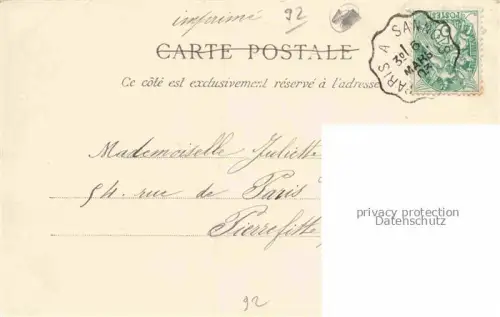 imprimé 92
CARTE POSTALE
Ce côté est exclusivement réservé à l'adresse
PARIS A SANNOIS
3º
6
MARS
03
Mademoiselle Juliette
54 rue de Paris
Pierrefitte
privacy protection
Datenschutz
92